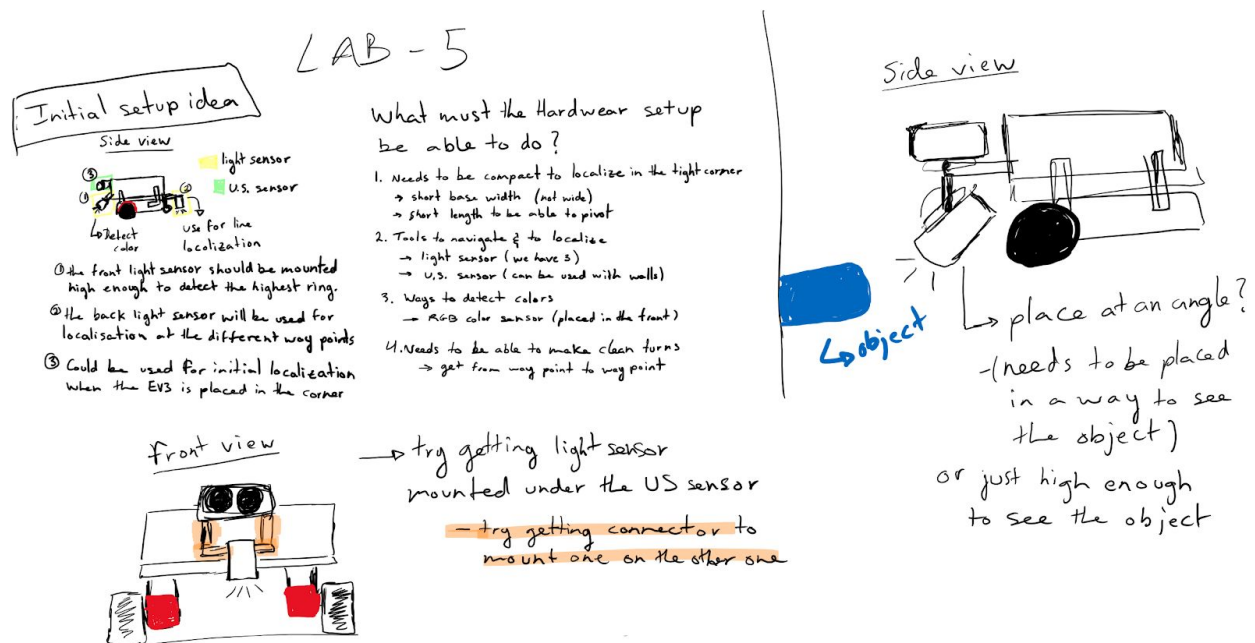 LAB - 5
Initial setup idea
Side view
light sensor
U.S. sensor
③
①
②
↳ Detect
color
use for line
localization
① the front light sensor should be mounted
high enough to detect the highest ring.
② the back light sensor will be used for
localisation at the different way points
③ Could be used for initial localization
when the EV3 is placed in the corner
What must the Hardwear setup
be able to do?
1. Needs to be compact to localize in the tight corner
→ short base width (not wide)
→ short length to be able to pivot
2. Tools to navigate & to localize
→ light sensor (we have 3)
→ U.S. sensor (can be used with walls)
3. Ways to detect colors
→ RGB color sensor (placed in the front)
4. Needs to be able to make clean turns
→ get from way point to way point
front view
→ try getting light sensor
mounted under the US sensor
- try getting connector to
mount one on the other one
Side view
↳ object
↳ place at an angle?
-(needs to be placed
in a way to see
the object)
or just high enough
to see the object